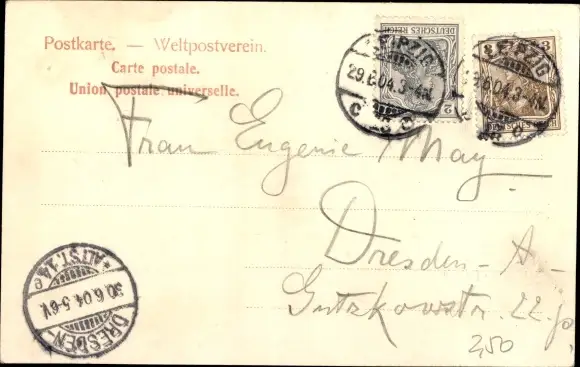 Postkarte. — Weltpostverein.
Carte postale.
Union postale universelle.
DEUTSCHES REICH
2
3
LEIPZIG
29.6.04.3-4N.
LEIPZIG
6.04.3-4N.
Frau Eugenie May
Dresden-A-
Gutzkowstr. 22. p.
2,50
DRESDEN-
30.6.04.5-6V.
*ALTST.14e